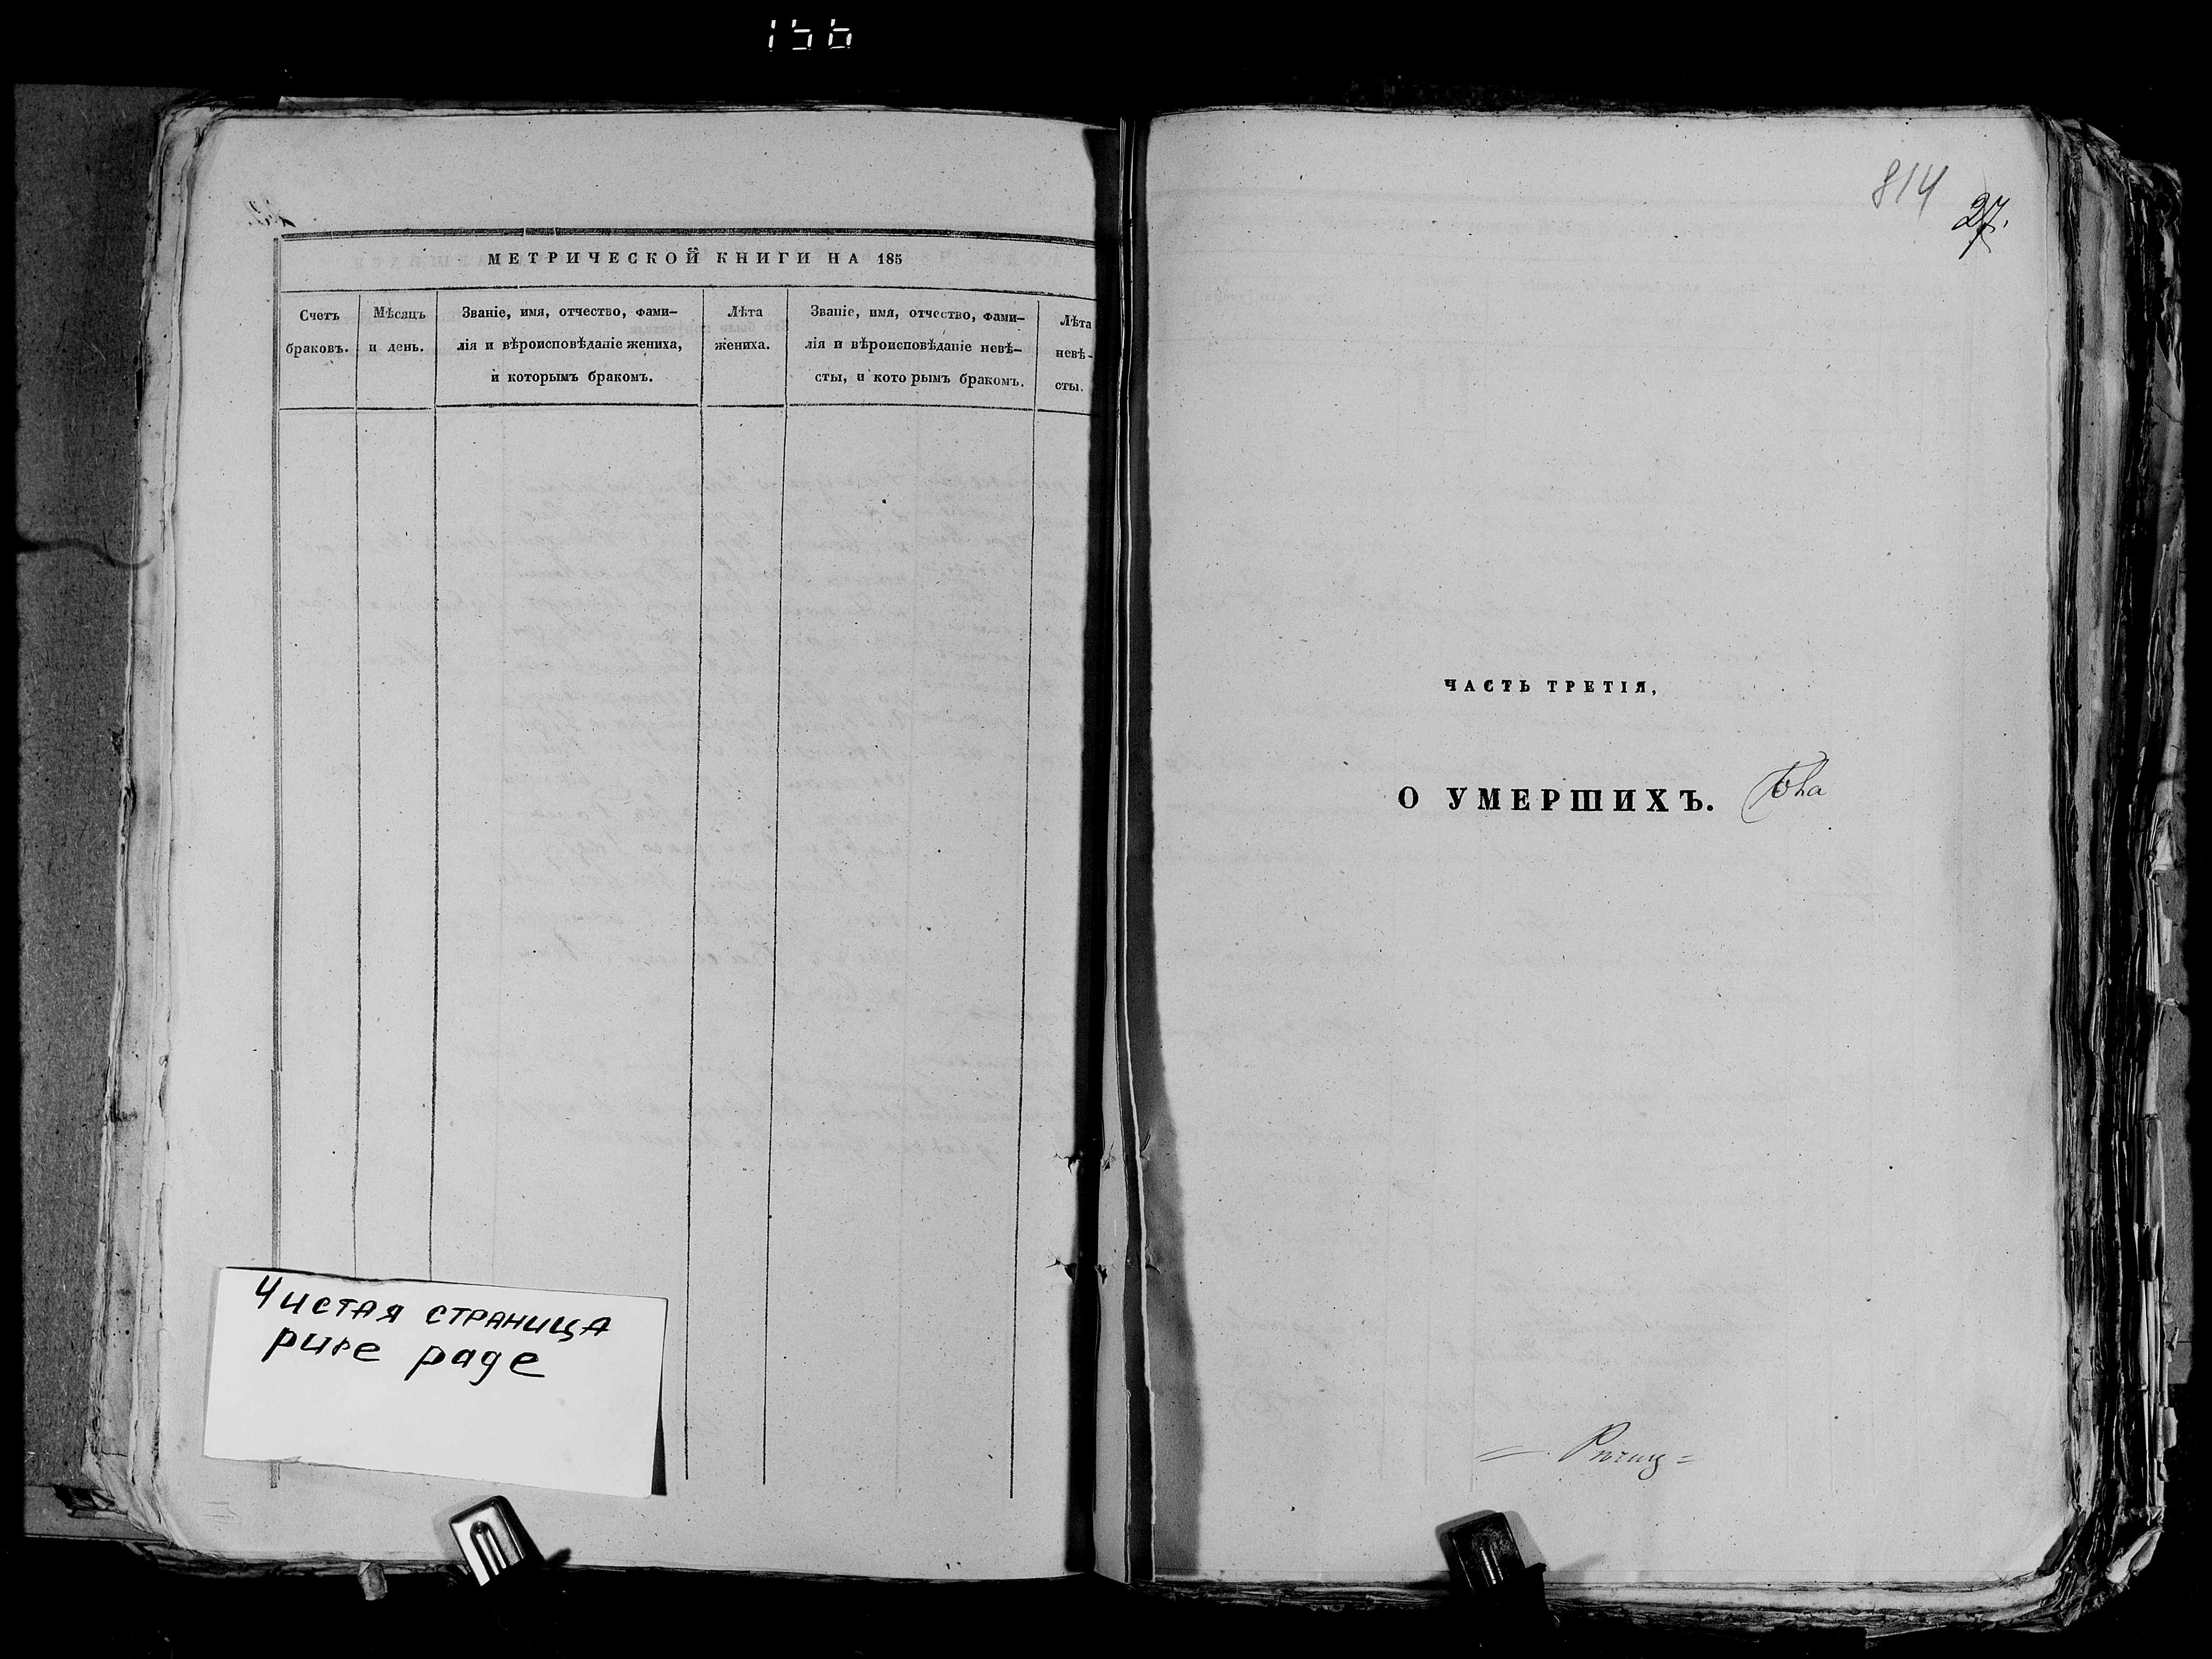 156
МЕТРИЧЕСКОЙ КНИГИ НА 185
Счетъ
браковъ.
Мѣсяцъ
и день.
Званіе, имя, отчество, фами-
лія и вѣроисповѣданіе жениха,
и которымъ бракомъ.
Лѣта
жениха.
Званіе, имя, отчество, фами-
лія и вѣроисповѣданіе невѣ-
сты, и кото рымъ бракомъ.
Лѣта
невѣ-
сты.
Чистая страница
pure page
814
27.
ЧАСТЬ ТРЕТІЯ,
О УМЕРШИХЪ.